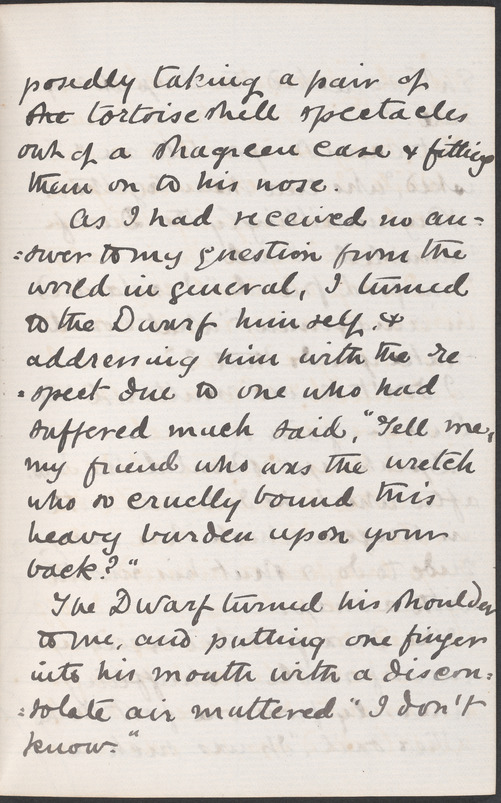 posedly taking a pair of
the tortoise shell spectacles
out of a shagreen case & fitting
them on to his nose.
As I had received no an=
=swer to my question from the
world in general, I turned
to the Dwarf himself, &
addressing him with the re
=spect due to one who had
suffered much said, "Tell me,
my friend who was the wretch
who so cruelly bound this
heavy burden upon your
back?"
The Dwarf turned his shoulder
to me, and putting one finger
into his mouth with a discon=
=solate air muttered "I don't
know."